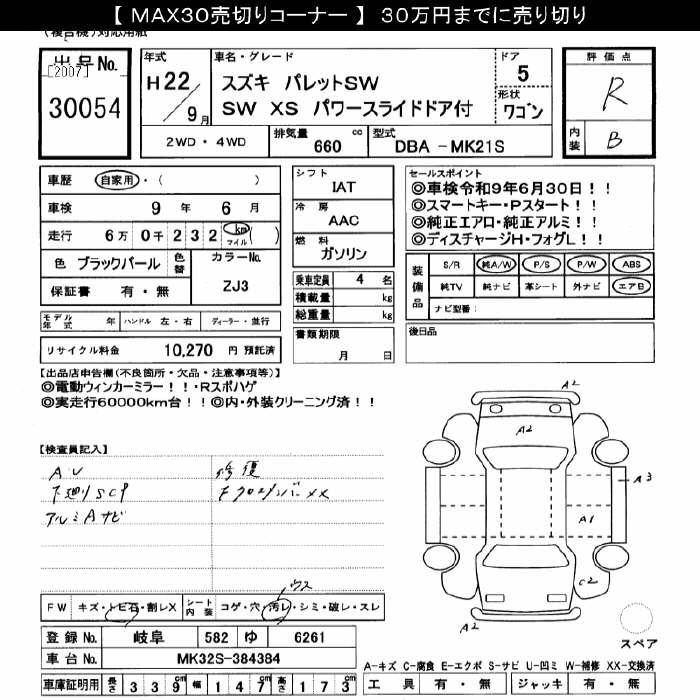 【 MAX30売切りコーナー 】 30万円までに売り切り
(複合機)対応用紙
出品No.
[2007]
30054
年式
H22/9月
車名・グレード
スズキ パレットSW
SW XS パワースライドドア付
ドア
5
形状
ワゴン
評価点
R
内装
B
2WD・4WD
排気量 660 cc
型式 DBA -MK21S
車歴 自家用・( )
車検 9年 6月
走行 6万 0千 2 3 2 km マイル ( )
色 ブラックパール
色替
カラーNo.
ZJ3
保証書 有・無
シフト
IAT
冷房
AAC
燃料
ガソリン
乗車定員 4 名
積載量 kg
総重量 kg
書類期限
月 日
セールスポイント
◎車検令和9年6月30日!!
◎スマートキー・Pスタート!!
◎純正エアロ・純正アルミ!!
◎ディスチャージH・フォグL!!
装備品
S/R 純A/W P/S P/W ABS
純TV 純ナビ 革シート 外ナビ エアB
ナビ型番:
モデル年式 年 ハンドル 左・右 ディーラー・並行
リサイクル料金 10,270 円 預託済
後日品
【出品店申告欄(不良箇所・欠品・注意事項等)】
◎電動ウィンカーミラー!!・Rスポハゲ
◎実走行60000km台!!◎内・外装クリーニング済!!
【検査員記入】
AU
下廻りSCP
アルミAサビ
修復
FクロスメンバーXX
A2
A2
A3
A1
C2
A2
ウス
FW キズ・トビ石・割レX
シート内装 コゲ・穴・汚レ・シミ・破レ・スレ
スペア
登録No. 岐阜 582 ゆ 6261
車台No. MK32S-384384
A-キズ C-腐食 E-エクボ S-サビ U-凹ミ W-補修 XX-交換済
車庫証明用 長さ 3 3 9cm 幅 1 4 7cm 高さ 1 7 3cm
工具 有・無 ジャッキ 有・無